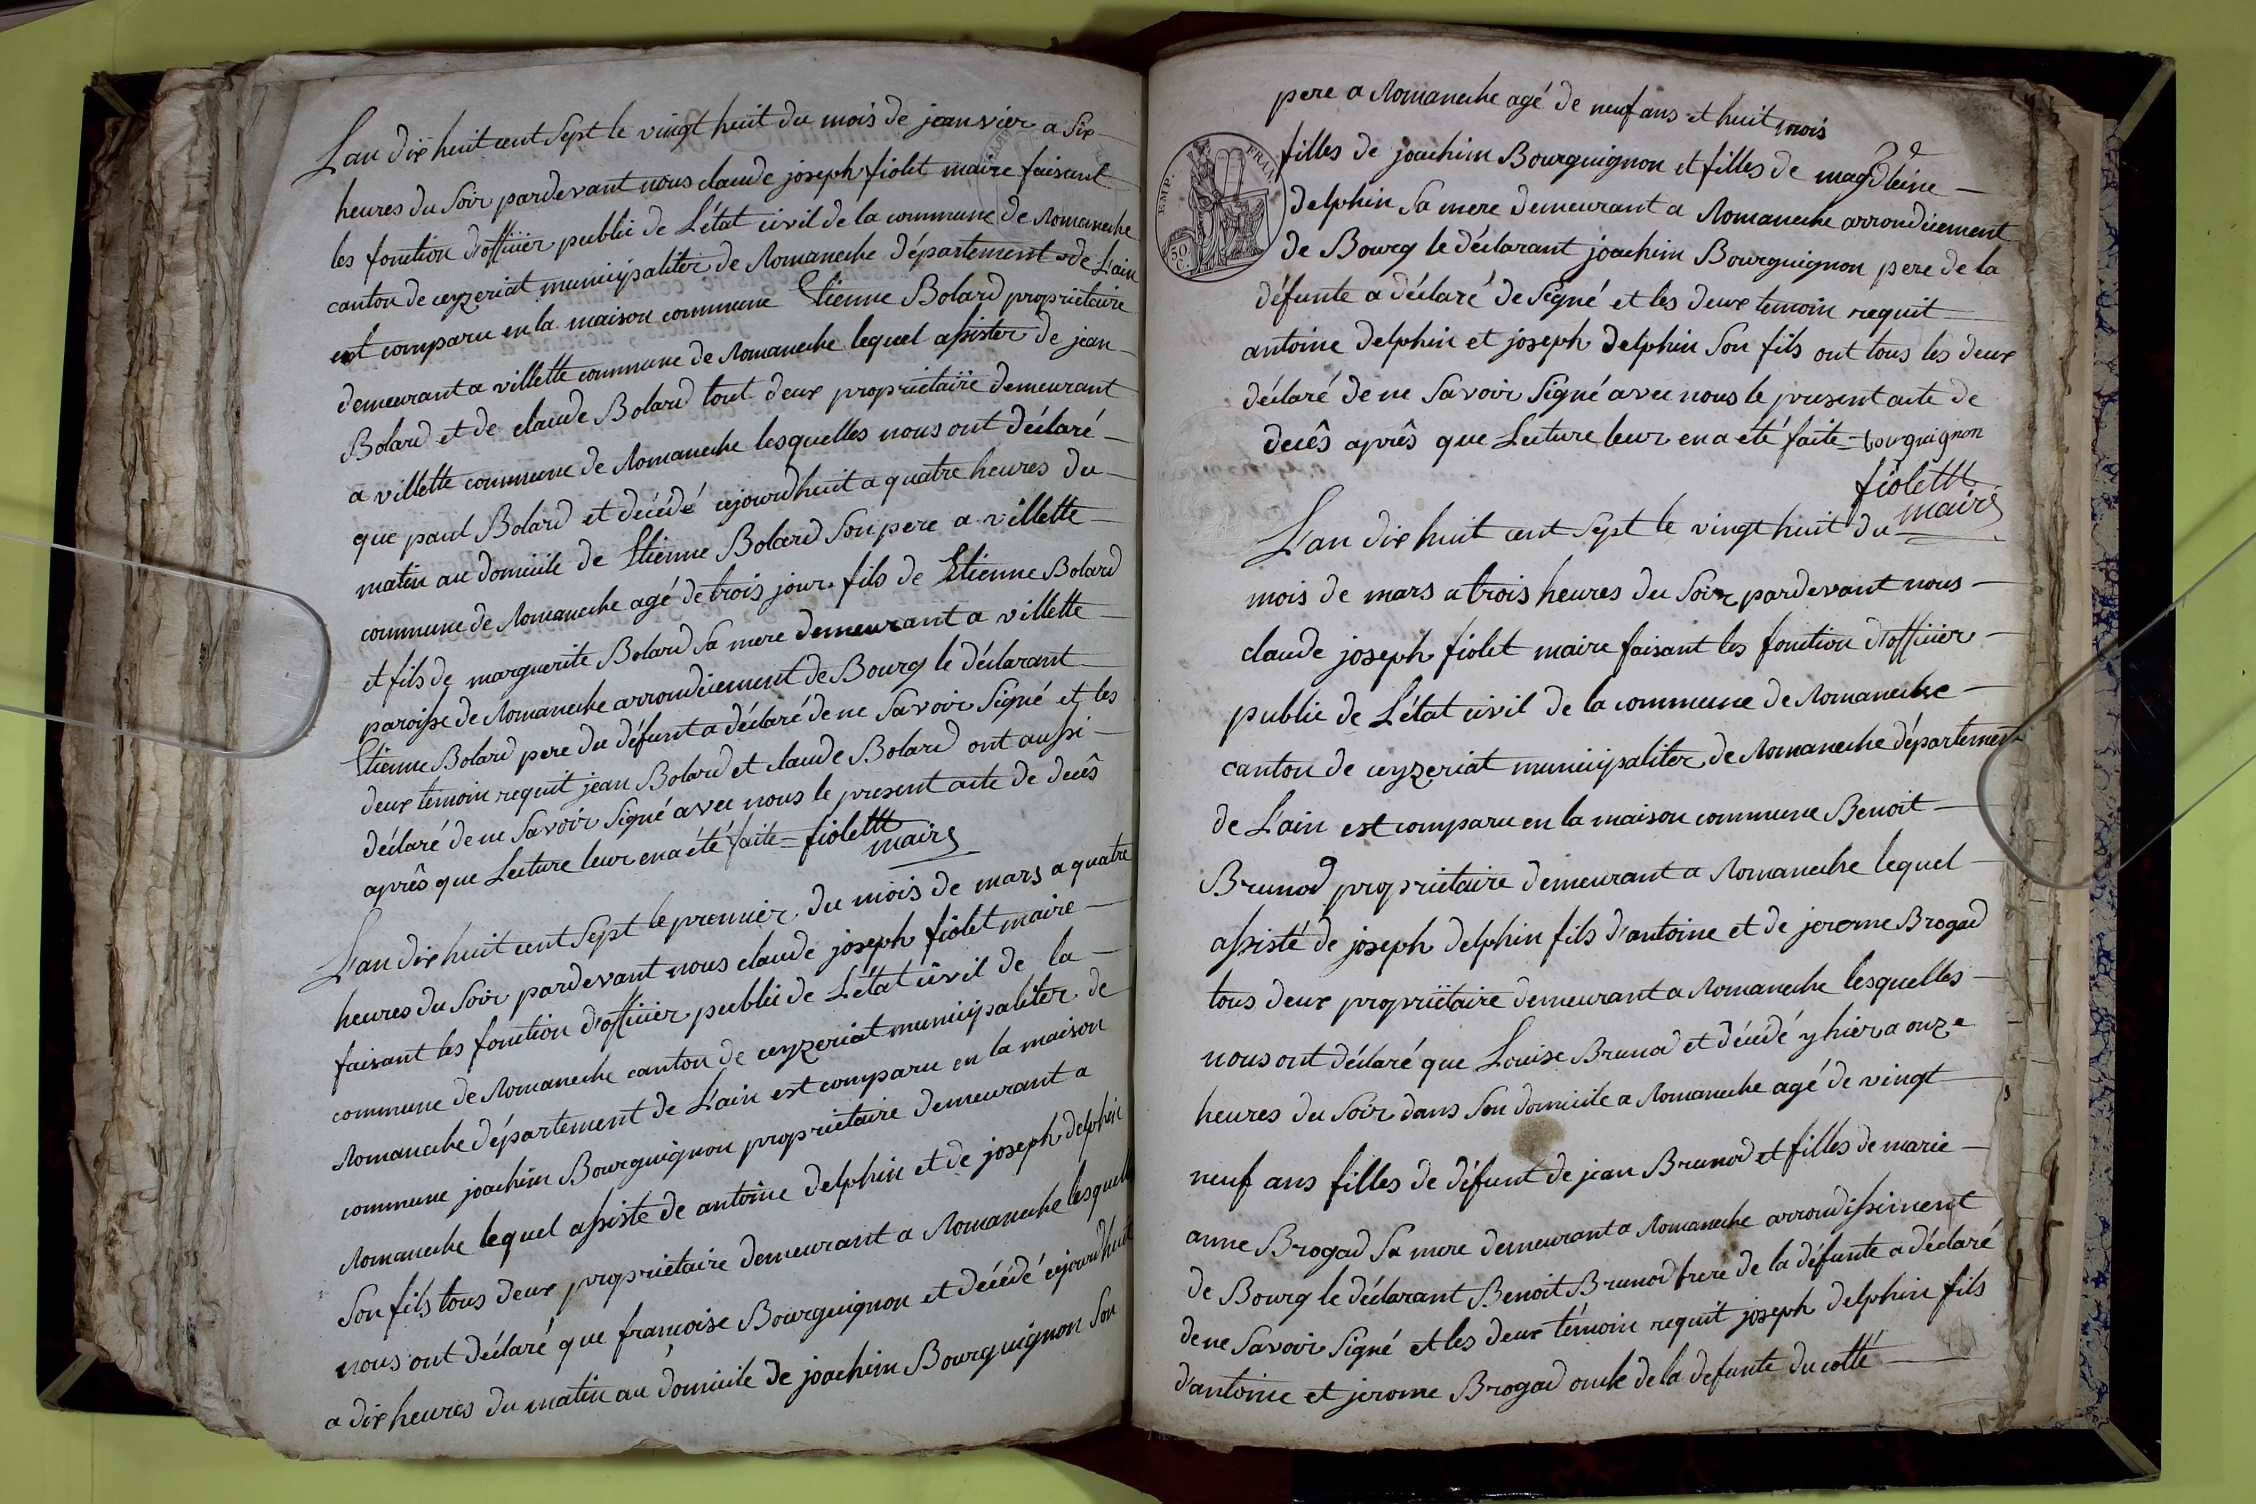 Lan dix huit cent Sept le vingt huit du mois de jeanvier a Six
heures du Soir pardevant nous claude joseph fiolet maire faisant
les fonction d'officier public de L'état civil de la commune de Romaneche
canton de ceyzeriat municipaliter de Romaneche département de L'ain
est comparu en la maison commune Etienne Bolard proprietaire
demeurant a villette commune de Romaneche lequel assister de jean
Bolard et de claude Bolard tout deux proprietaire demeurant
a villette commune de Romaneche lesquelles nous ont déclaré
que paul Bolard et décédé cejourdhuit a quatre heures du
matin au domicile de Etienne Bolard Son pere a villette
commune de Romaneche agé de trois jour fils de Etienne Bolard
et fils de marguerite Bolard Sa mere demeurant a villette
paroisse de Romaneche arrondicement de Bourg le déclarant
Etienne Bolard pere du défunt a déclaré de ne Savoir Signé et les
deux temoin requit jean Bolard et claude Bolard ont aussi
déclaré de ne Savoir Signé avec nous le present acte de decês
aprês que Lecture leur en a été faite = fiolettt
maire
L'an dix huit cent Sept le premier du mois de mars a quatre
heures du Soir pardevant nous claude joseph fiolet maire
faisant les fonction d'officier public de L'état civil de la
commune de Romaneche canton de ceyzeriat municipaliter de
Romaneche département de L'ain est comparu en la maison
commune joachim Bourguignon proprietaire demeurant a
Romaneche lequel assiste de antoine delphin et de joseph delphin
Son fils tous deux proprietaire demeurant a Romaneche lesquels
nous ont déclaré que françoise Bourguignon et décédé cejourdhuit
a dix heures du matin au domicile de joachim Bourguignon Son
pere a Romaneche agé de neuf ans et huit mois
EMP. FRAN.
50 C.
filles de joachim Bourguignon et filles de magdleine
delphin Sa mere demeurant a Romaneche arrondicement
de Bourg le déclarant joachim Bourguignon pere de la
défunte a déclaré de Signé et les deux temoin requit
antoine delphin et joseph delphin Son fils ont tous les deux
déclaré de ne Savoir Signé avec nous le present acte de
decês aprês que Lecture leur en a été faite = bourguignon
fiolettt
maire
L'an dix huit cent Sept le vingt huit du
mois de mars a trois heures du Soir pardevant nous
claude joseph fiolet maire faisant les fonction d'officier
public de L'état civil de la commune de Romaneche
canton de ceyzeriat municipaliter de Romaneche département
de L'ain est comparu en la maison commune Benoit
Brunod proprietaire demeurant a Romaneche lequel
assisté de joseph delphin fils d'antoine et de jerome Brogad
tous deux propriïtaire demeurant a Romaneche lesquelles
nous ont déclaré que Louise Brunod et décédé y hier a onze
heures du Soir dans Son domicile a Romaneche agé de vingt
neuf ans filles de défunt de jean Brunod et filles de marie
anne Brogad Sa mere demeurant a Romaneche arrondissiment
de Bourg le déclarant Benoit Brunod frere de la défunte a déclaré
de ne Savoir Signé et les deux témoin requit joseph delphin fils
d'antoine et jerome Brogad oncle de la defunte du cotté